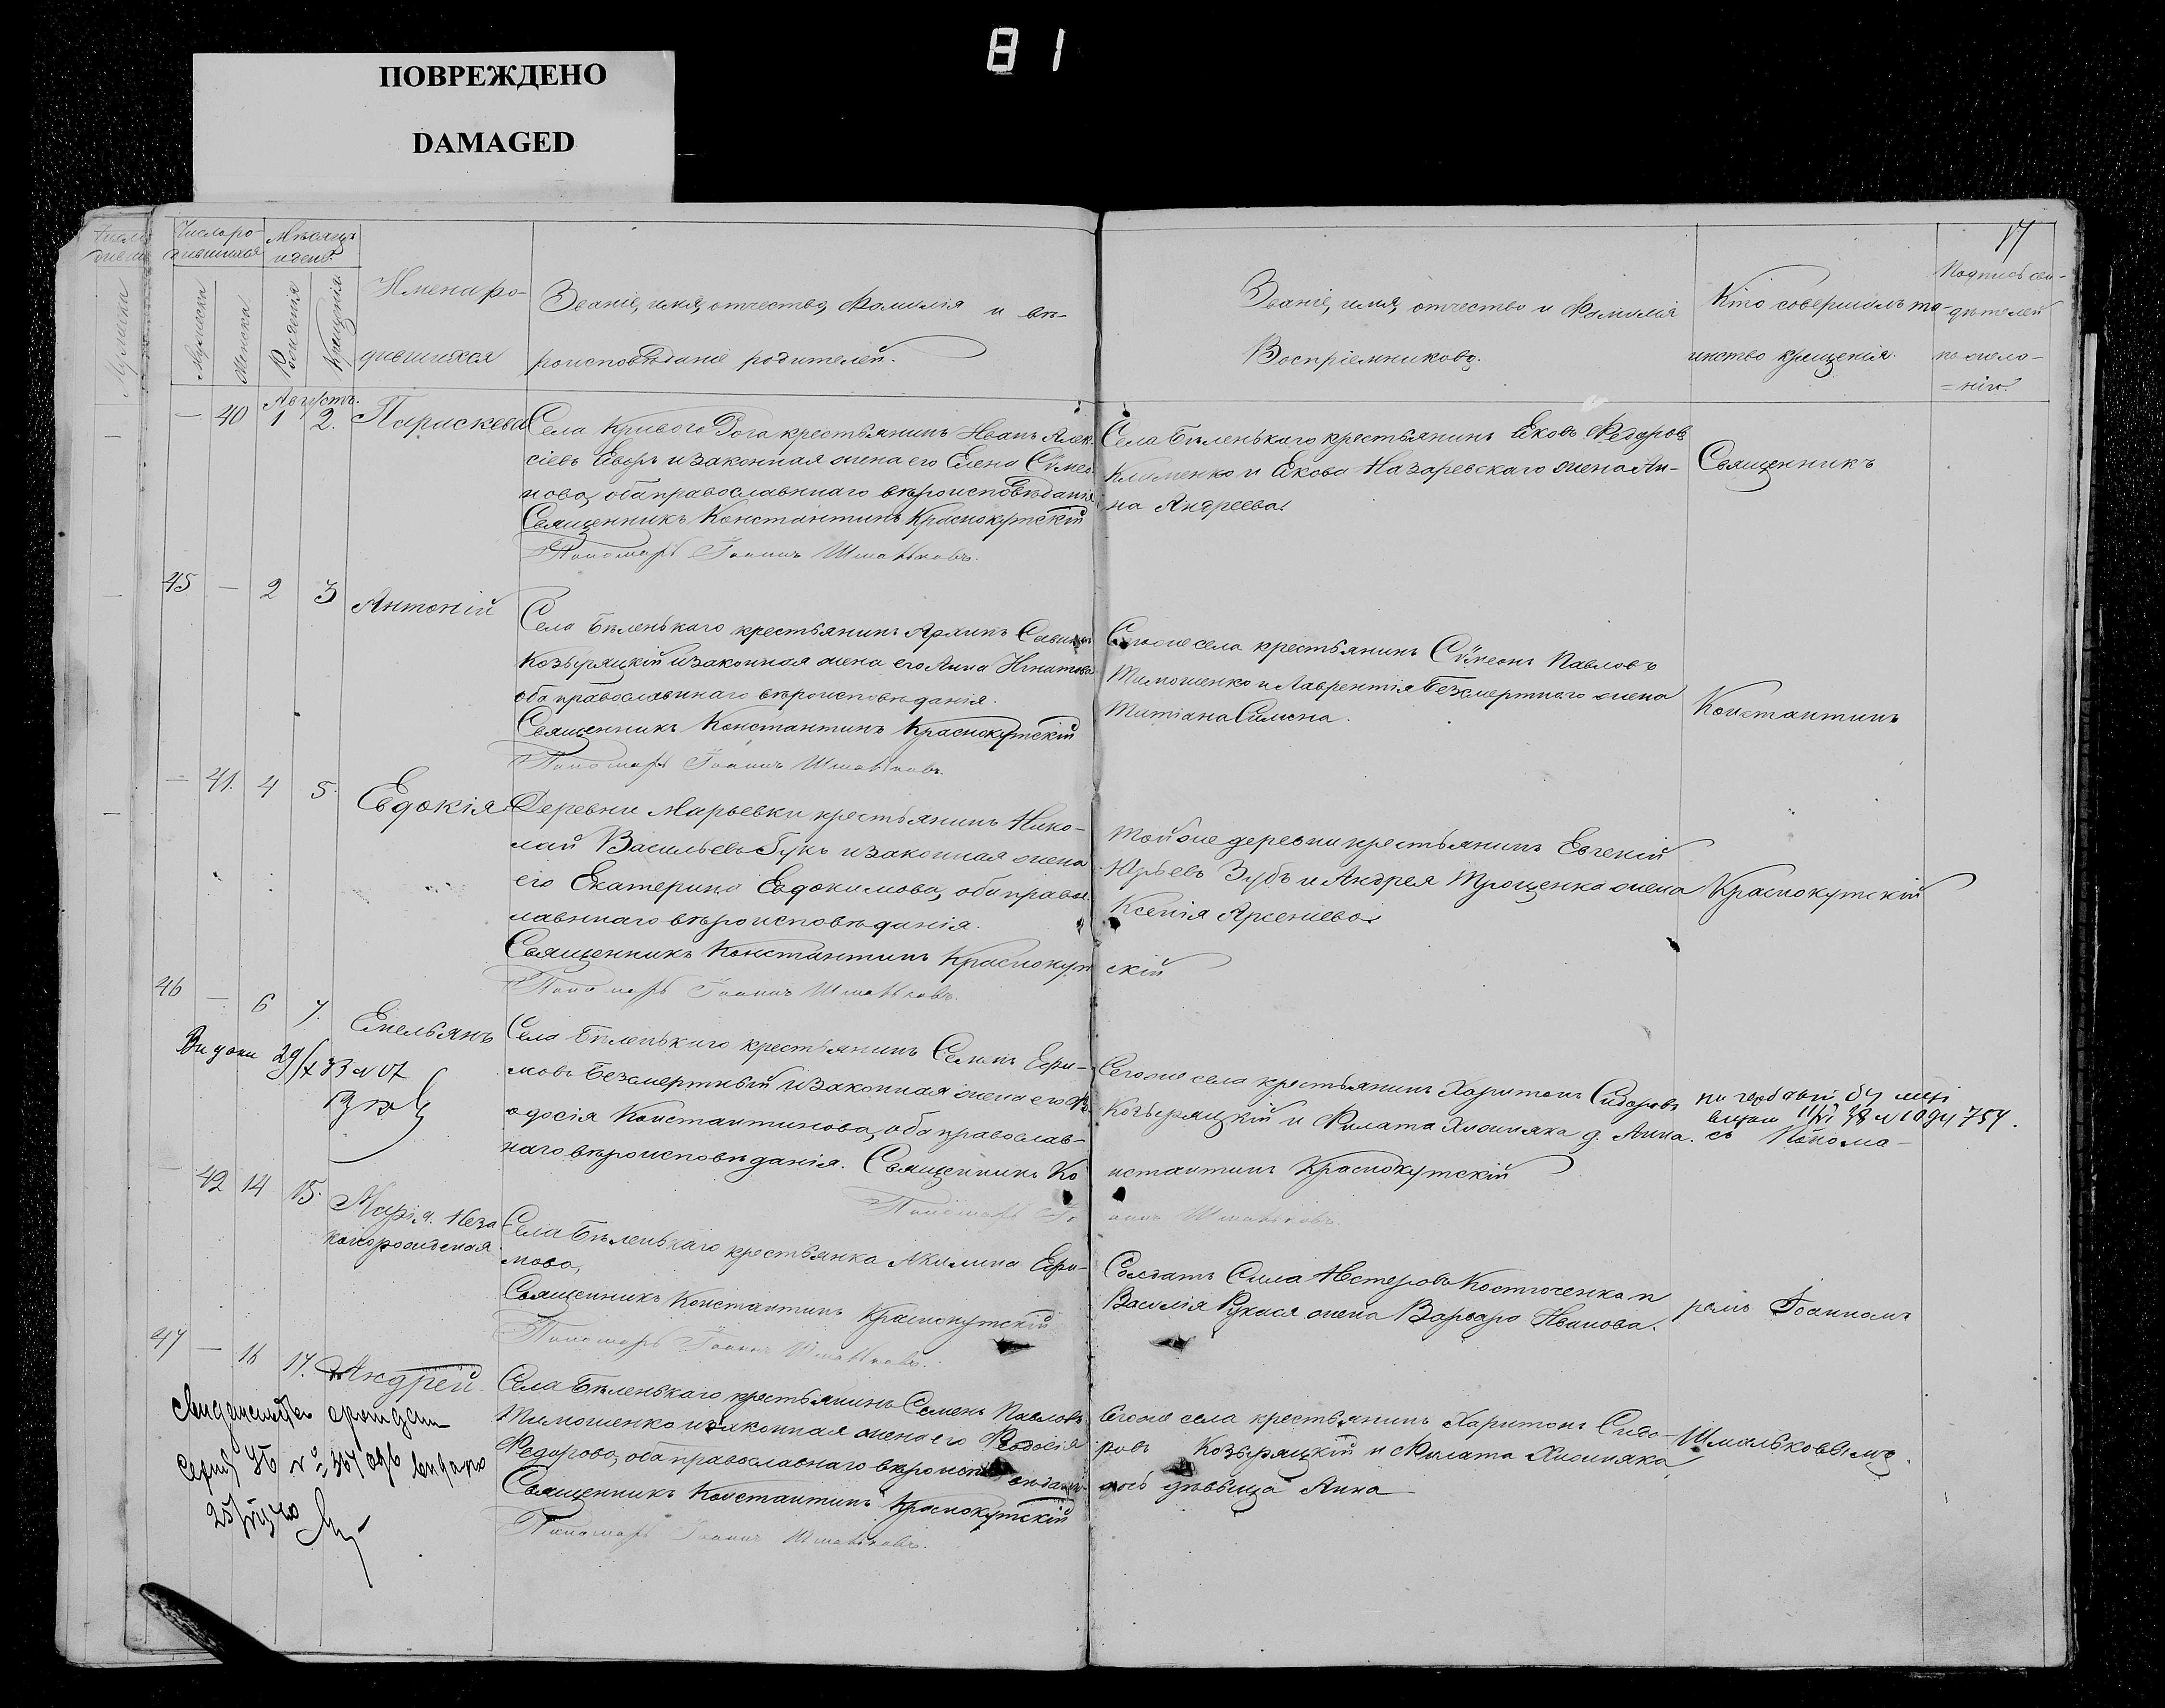 81
ПОВРЕЖДЕНО
DAMAGED
17
Числа ро-
дившихся
Мѣсяцъ
и день.
Мужеска
Женска
Рожденія
Крещенія
Имена ро-
дившихся
Званіе, имя, отчество, Фамилія и вѣ-
роисповѣданіе родителей.
Званіе, имя, отчество и Фамилія
Воспріемниковъ.
Кто совершалъ та-
инство крещенія.
Подпись сви-
дѣтелей
по жела-
=нію.
Августъ.
— 40 1 2. Параскева
Села Криваго Рога крестьянинъ Иванъ Алек-
сіевъ и законная жена его Елена Сѵмео-
нова, оба православнаго вѣроисповѣданія
Священникъ Константинъ Краснокутскій
Пономарь Іоаннъ Шмальковъ.
Села Бѣленькаго крестьянинъ Яковъ Федоровъ
Клименко и Якова Назаревскаго жена Ан-
на Андреева.
Священникъ
45 — 2 3 Антоній
Села Бѣленькаго крестьянинъ Савинъ
Козыряцкій и законная жена его Анна Игнатова
оба православнаго вѣроисповѣданія.
Священникъ Константинъ Краснокутскій
Пономарь Іоаннъ Шмальковъ.
Сегоже села крестьянинъ Сѵмеонъ Павловъ
Тимошенко и Лаврентія Безсмертнаго жена
Татіана
Константинъ
— 41. 4 5. Евдокія
Деревни Марьевки крестьянинъ Нико-
лай Васильевъ Гукъ и законная жена
его Екатерина Евдокимова, оба правос-
лавнаго вѣроисповѣданія.
Священникъ Константинъ Краснокут
скій
Пономарь Іоаннъ Шмальковъ.
Тойже деревни крестьянинъ Евгеній
Юрьевъ Зубъ и Андрея Трощенка жена
Ксенія Арсеніева
Краснокутскій
46 — 6 7. Емельянъ
Села Бѣленькаго крестьянинъ Семенъ Ефи-
мовъ Безсмертный и законная жена его Фе-
одосія Константинова, оба православ-
наго вѣроисповѣданія. Священникъ Ко
нстантинъ Краснокутскій
Пономарь Іо
аннъ Шмальковъ.
Сегоже села крестьянинъ Харитонъ Сидоровъ
Козыряцкій и Филата Хижняка д. Анна.
съ Понома-
— 42 14 15. Марія. Неза
коннорожденная
Села Бѣленькаго крестьянка Акилина Ефи-
мова,
Священникъ Константинъ Краснокутскій
Пономарь Іоаннъ Шмальковъ.
Солдатъ Сила Нестеровъ Костюченко и
Василія жена Варвара Иванова.
ремъ Іоанномъ
47 — 16 17. Андрей.
Села Бѣленькаго крестьянинъ Семенъ Павловъ
Тимошенко и законная жена его Феодосія
Федорова, оба православнаго вѣроисповѣданія
Священникъ Константинъ Краснокутскій
Пономарь Іоаннъ Шмальковъ.
Сегоже села крестьянинъ Харитонъ Сидо-
ровъ Козыряцкій и Филата Хижняка
дочь дѣвица Анна
Шмальковымъ.